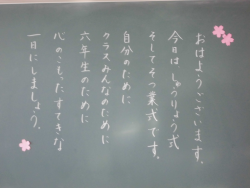 おはようございます。
今日は しゅうりょう式
そして そつ業式です。
自分のために
クラスみんなのために
六年生のために
心のこもった すてきな
一日にしましょう。